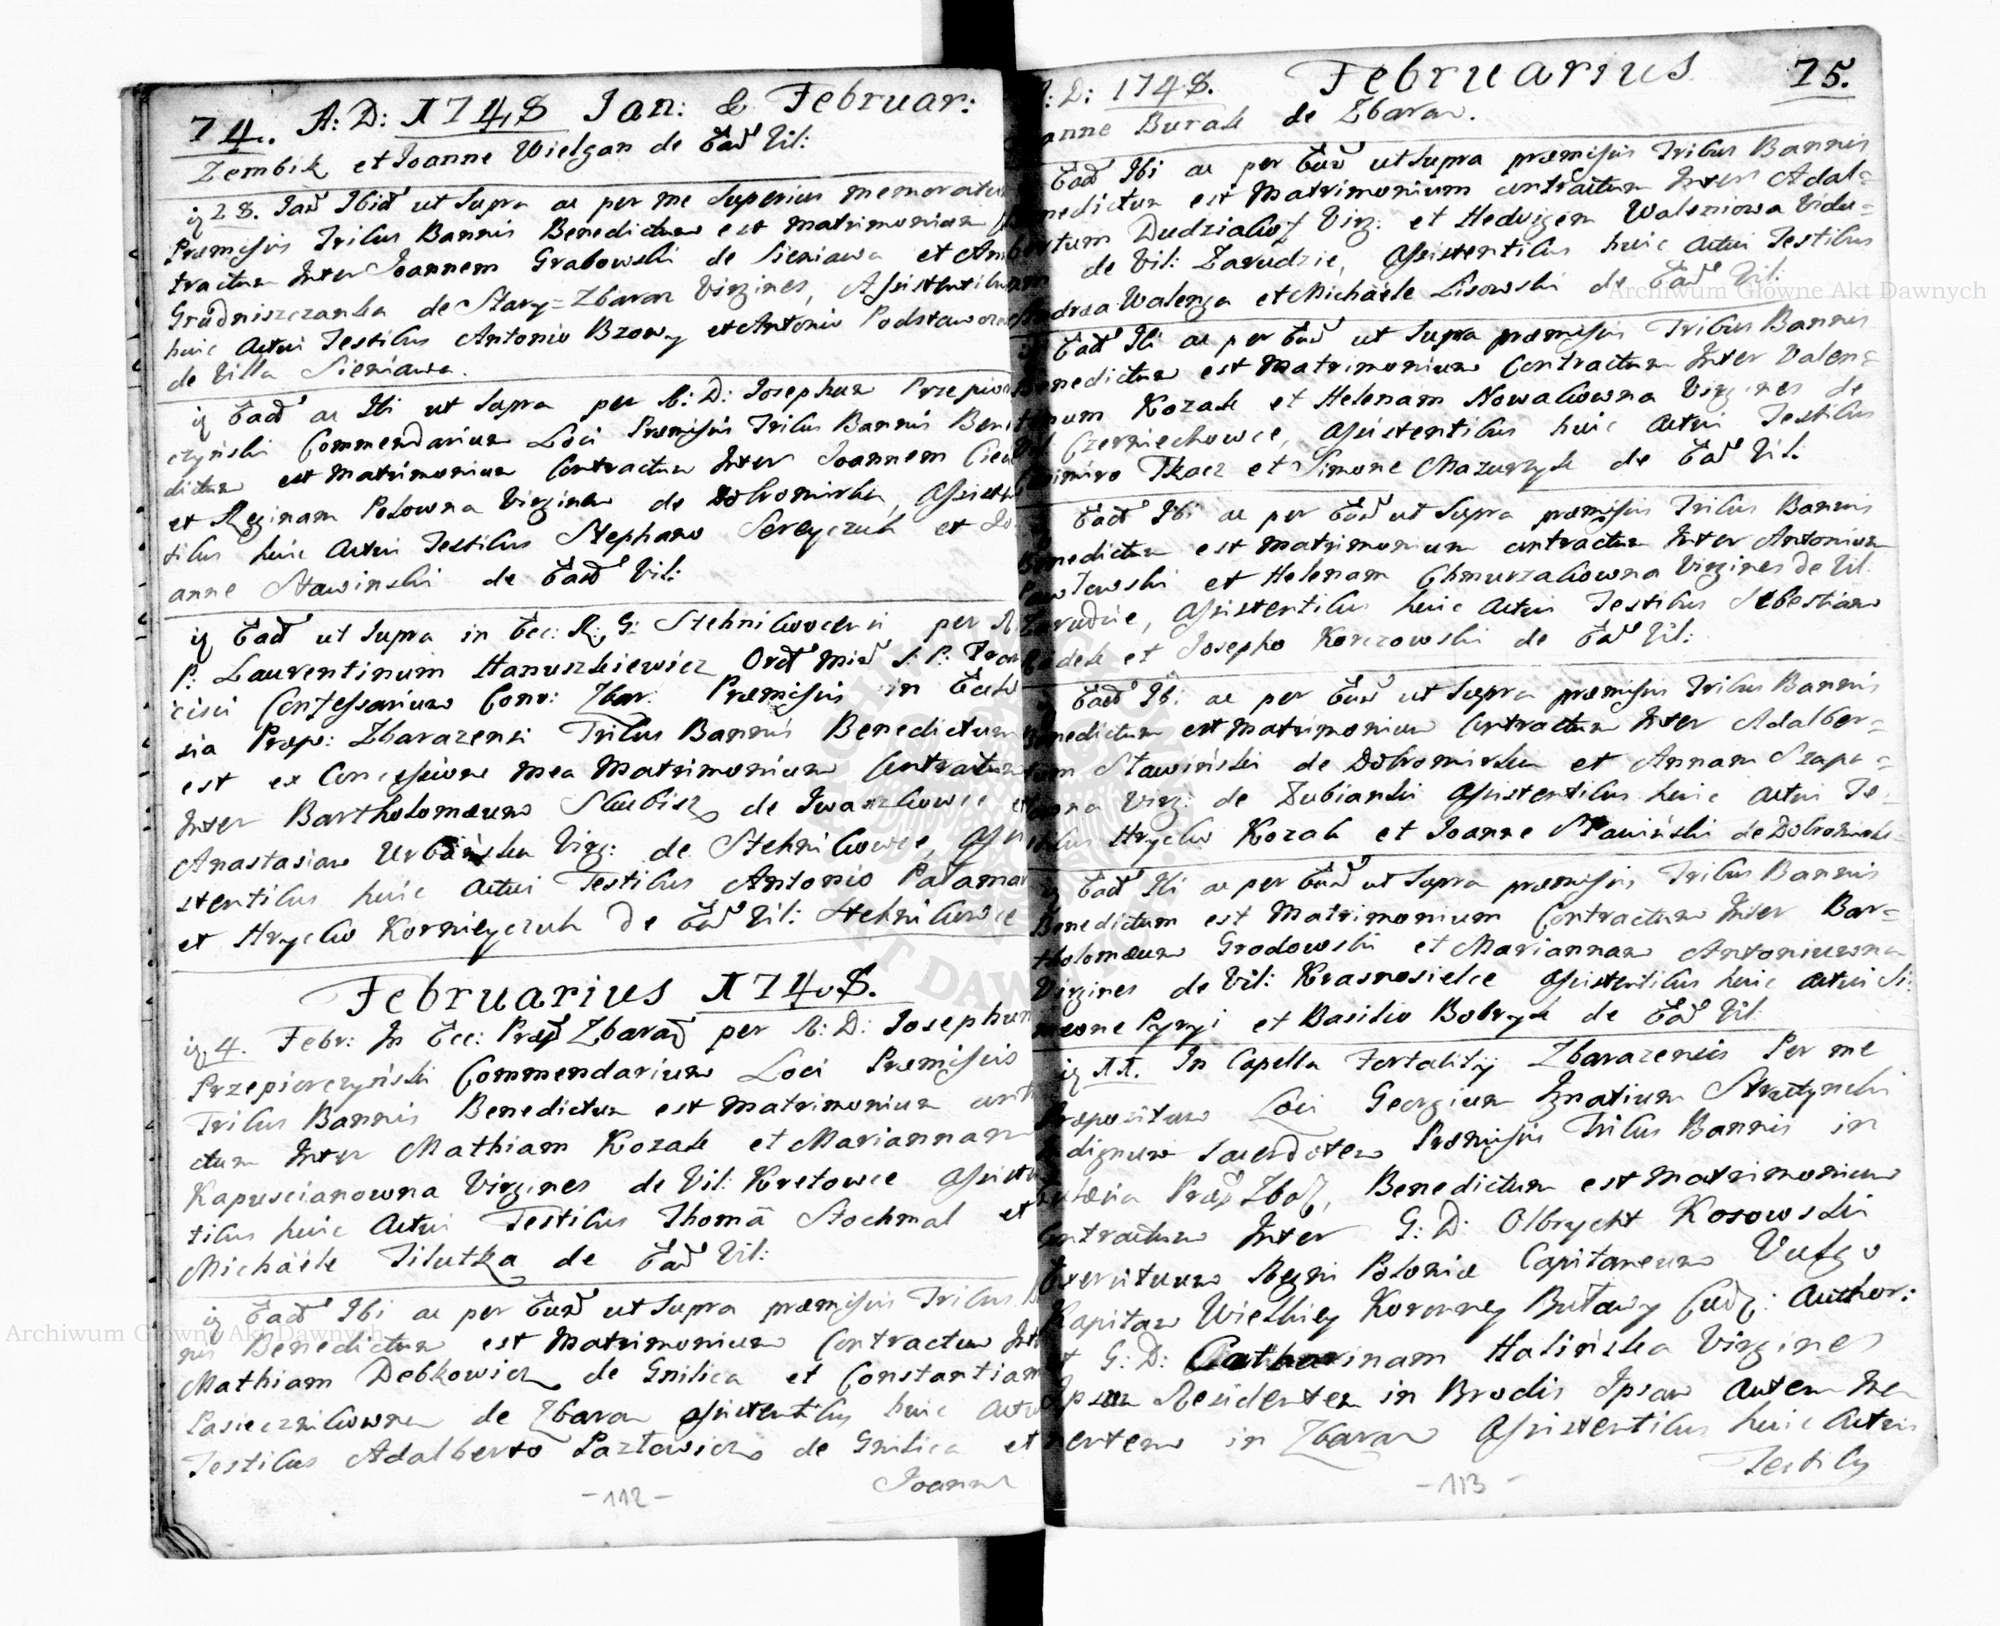 74. A: D: 1748 Jan: & Februar:
Zembik et Joanne Wielgan de Ead Vil:
28. Jan Ibid ut Supra ac per me Superius memoratum
Præmissis Tribus Bannis Benedictum est Matrimonium
tractum Inter Joannem Grabowski de Sieniawa et
Grudniszczanka de Stary=Zbaraz Virgines, Assistentibus
huic Actui Testibus Antonio Bzowy et Antonio
de Villa Sieniawa.
Ead ac Ibi ut Supra per A: D: Josephum Przepior
czyński Commendarium Loci Præmissis Tribus Bannis Bene
dictum est Matrimonium Contractum Inter Joannem
et Reginam Pelowna Virgines de Dobromirka, Assisten
tibus huic Actui Testibus Stephano Sereyczuk et Jo
anne Stawinski de Ead Vil:
Ead ut Supra in Ecc: R: G: Stehnikovcensi per R
P: Laurentinum Hanuszkiewicz Ord Min S: P: Fran
cisci Confessarium Conv: Zbar: Præmissis in Eccle
sia Præp: Zbarazensi Tribus Bannis Benedictum
est ex Concessione mea Matrimonium Contractum
Inter Bartholomæum Skubisz de Iwaszkowce et
Anastasiam Urbańska Virg: de Stehnikowce, Assi
stentibus huic Actui Testibus Antonio Palamar
et Hrycko Korniyczuk de Ead Vil: Stehnikowce
Februarius 1748.
4. Febr: In Ecc: Præp Zbaraz per A: D: Josephum
Przepiorczyński Commendarium Loci Præmissis
Tribus Bannis Benedictum est Matrimonium contra
ctum Inter Mathiam Kozak et Mariannam
Kapuscianowna Virgines de Vil: Kretowce Assisten
tibus huic Actui Testibus Thomā Stochmal et
Michaële Tilutka de Ead Vil:
Ead Ibi ac per Eund ut Supra præmissis Tribus Ban
nis Benedictum est Matrimonium Contractum Inter
Mathiam Debkowicz de Gnilica et Constantiam
Pasiecznikowna de Zbaraz Assistentibus huic Actui
Testibus Adalberto Pazlowicz de Gnilica et
Joanne
-112-
A: D: 1748. Februarius 75.
anne Burak de Zbaraz.
Ead Ibi ac per Eund ut Supra præmissis Tribus Bannis
Benedictum est Matrimonium contractum Inter Adal=
bertum Dudziak Virg: et Hedvigem Waleniowa Vidu=
am de Vil: Zarudzie, Assistentibus huic Actui Testibus
Andrea Walenga et Michaële Lisowski de Ead Vil:
Ead Ibi ac per Eund ut Supra præmissis Tribus Bannis
Benedictum est Matrimonium Contractum Inter Valen=
tinum Kozak et Helenam Nowakowna Virgines de
Vil Czerniechowce, Assistentibus huic Actui Testibus
Casimiro Tkacz et Simone Mazurzyk de Ead Vil.
Ead Ibi ac per Eund ut Supra præmissis Tribus Bannis
Benedictum est Matrimonium contractum Inter Antonium
Pawlowski et Helenam Chmurzakowna Virgines de Vil.
Zarudzie, Assistentibus huic Actui Testibus Sebestiano
et Josepho Korczowski de Ead Vil:
Ead Ibi ac per Eund ut Supra præmissis Tribus Bannis
Benedictum est Matrimonium Contractum Inter Adalber=
tum Stawiński de Dobromirka et Annam Szapa=
Virg: de Zubianki Assistentibus huic Actui Te=
stibus Hrycko Kozak et Joanne Stawiński de Dobromirk=
Ead Ibi ac per Eund ut Supra præmissis Tribus Bannis
Benedictum est Matrimonium Contractum Inter Bar=
tholomæum Grodowski et Mariannam Antoniuwna
Virgines de Vil: Krasnosielce Assistentibus huic Actui Si:
meone Pyryi et Basilio Bobryk de Ead Vil:
11. In Capella Fortalitij Zbarazensis Per me
Præpositum Loci Georgium Ignatium Stratynski
Indignum Sacerdotem Præmissis Tribus Bannis in
Ecclesia Præp Zbar, Benedictum est Matrimonium
Contractum Inter G: D: Olbrycht Kosowski
Exercituum Regni Poloniæ Capitaneum Vulgo
Kapitan Wielkiey Koronney Buławy Cudz: Author:
et G: D: Catharinam Halińska Virgines
Ipsum Residentem in Brodis Ipsam Autem Ma
nentem in Zbaraz Assistentibus huic Actui
Testibus
-113-
Archiwum Główne Akt Dawnych
Archiwum Główne Akt Dawnych